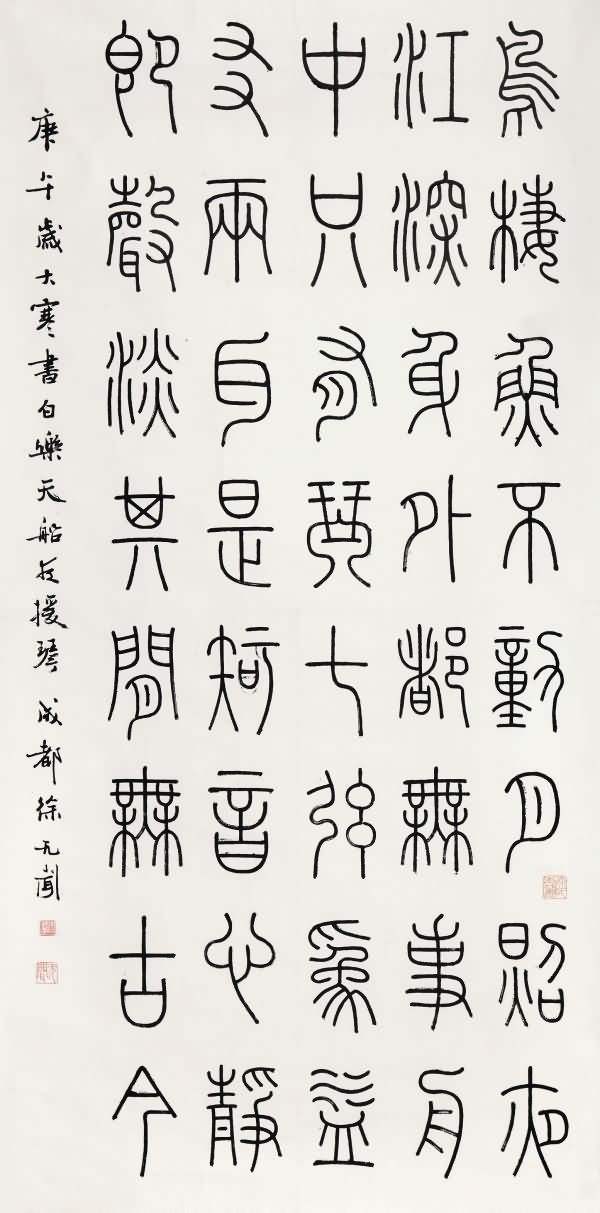 鳥棲魚不動月照夜
江深身外都無事舟
中只有琴七弦為益
友兩耳是知音心靜
即聲淡其閒無古今
庚午歲大寒書白樂天船夜援琴 成都徐无聞